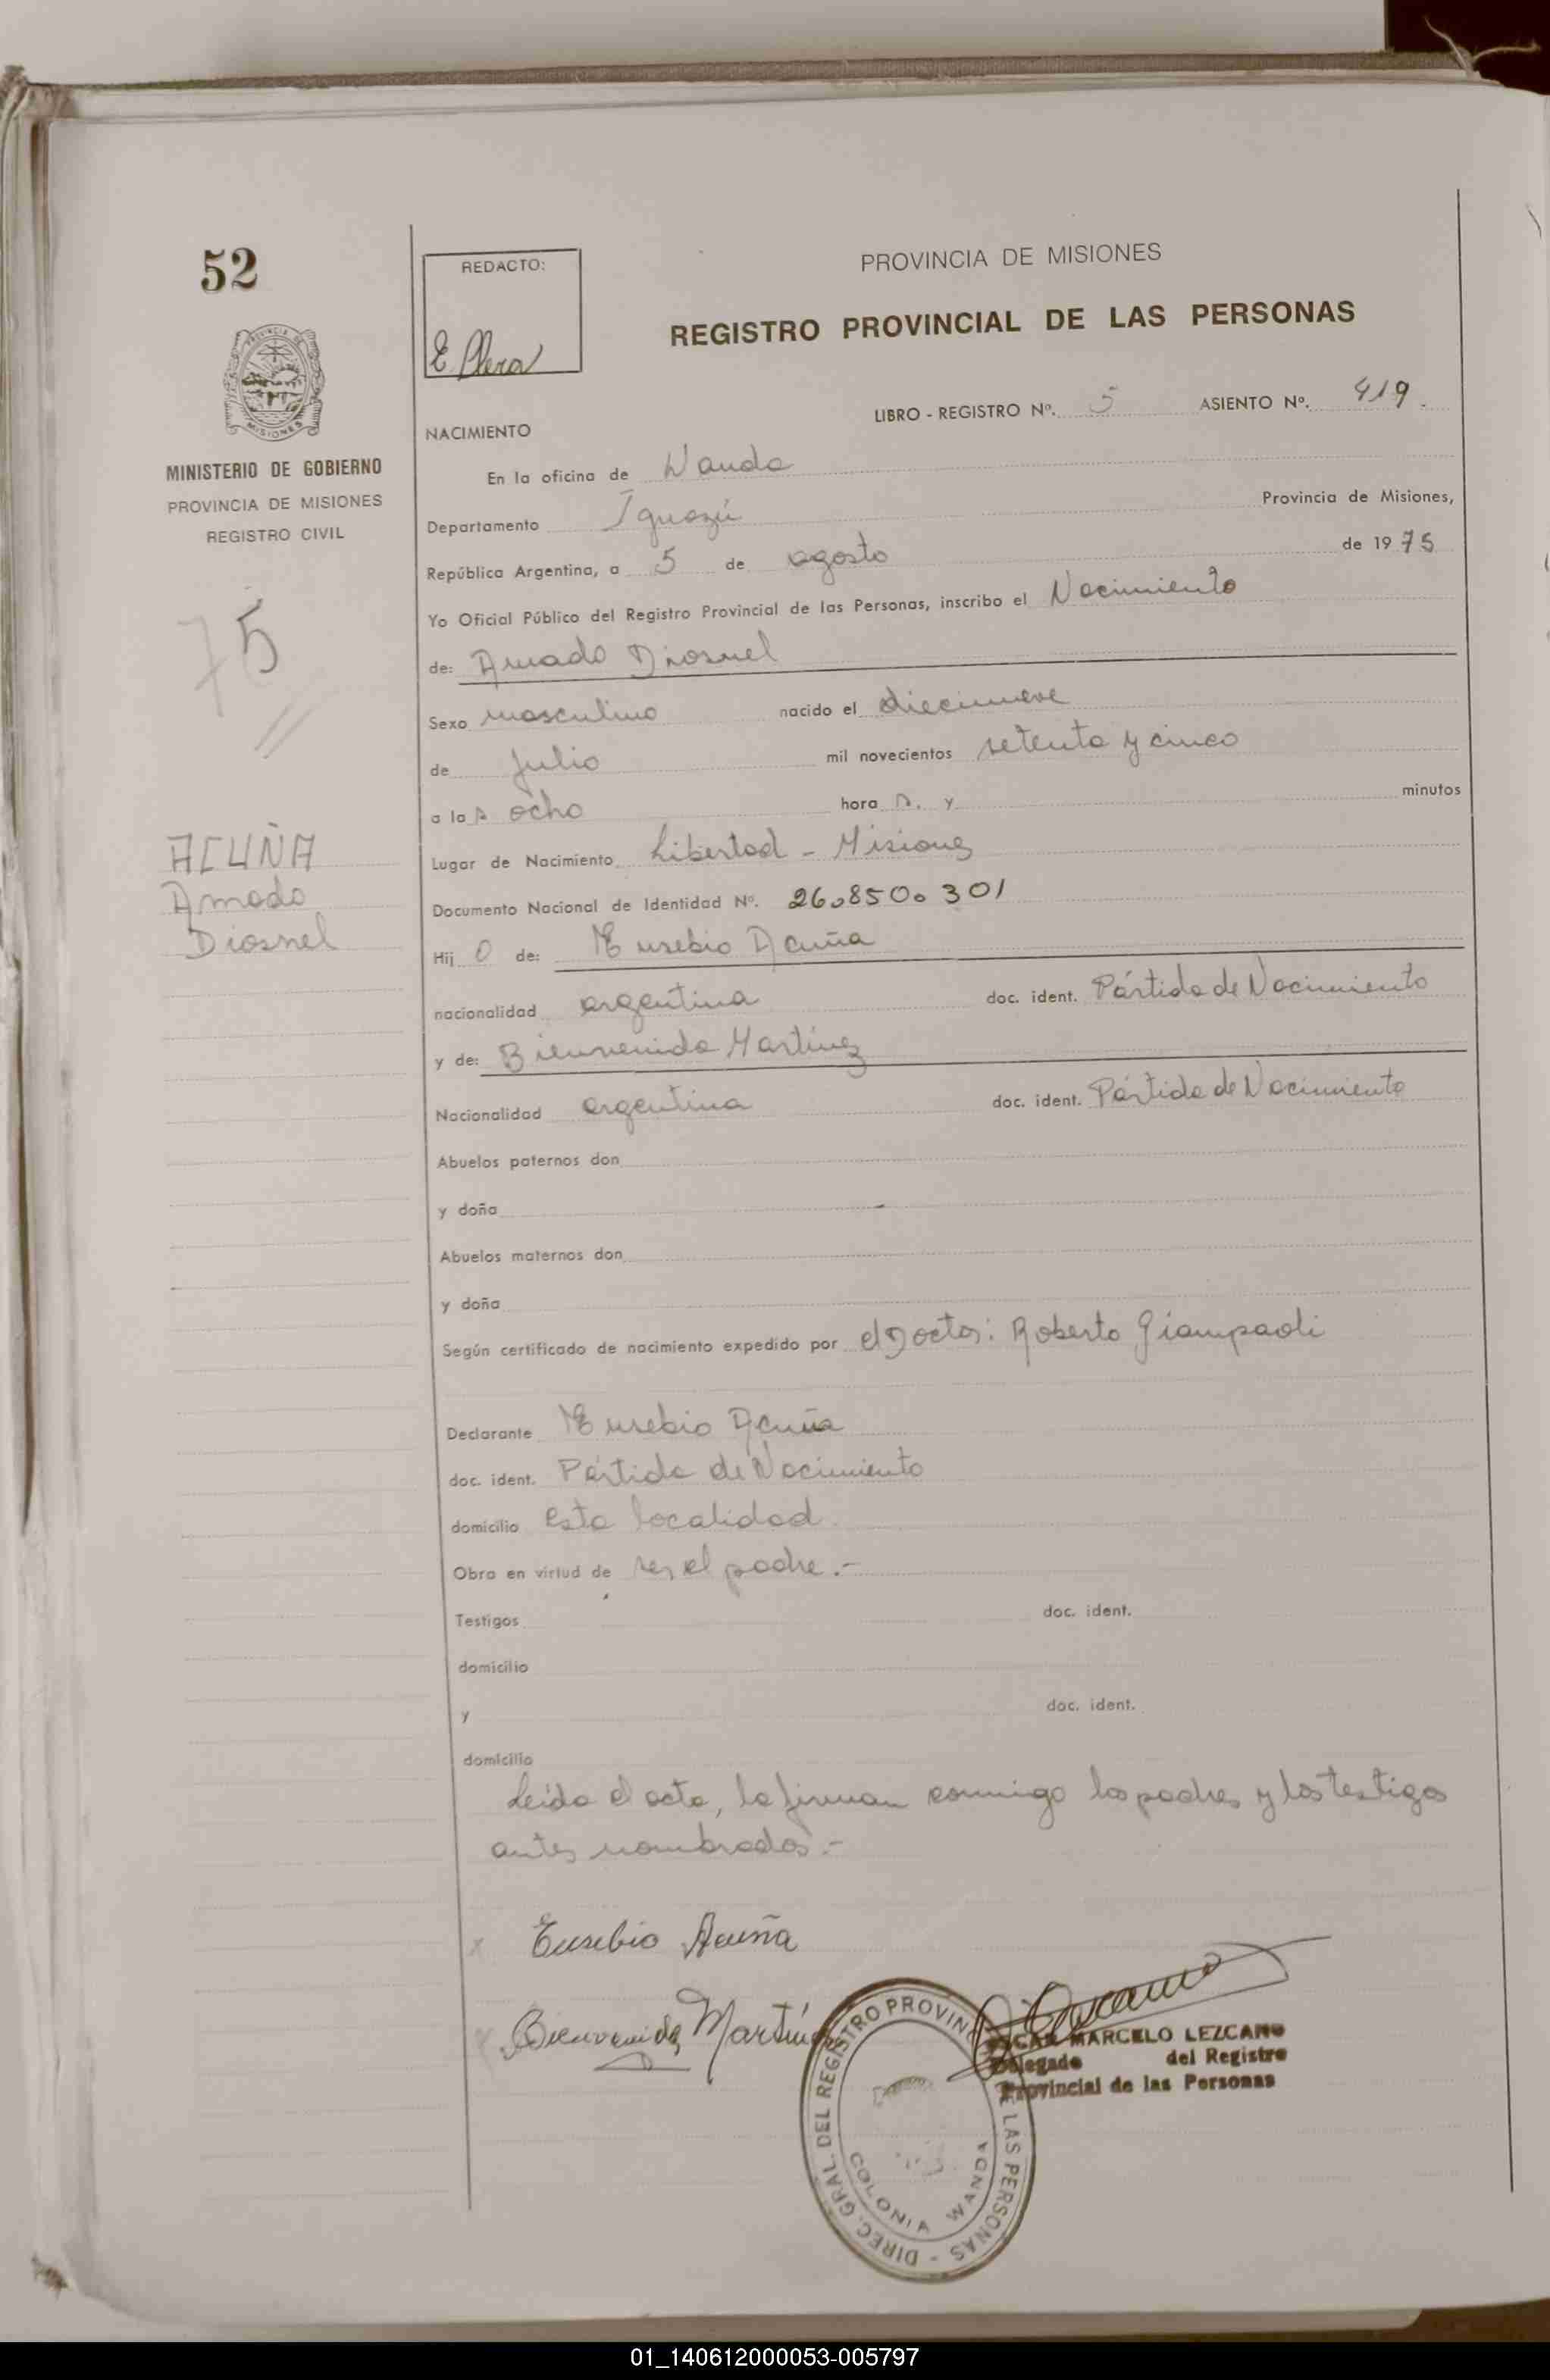 52
PROVINCIA DE MISIONES
MINISTERIO DE GOBIERNO
PROVINCIA DE MISIONES
REGISTRO CIVIL
75
ACUÑA
Amado
Diosnel
REDACTO:
PROVINCIA DE MISIONES
REGISTRO PROVINCIAL DE LAS PERSONAS
LIBRO - REGISTRO Nº. 5 ASIENTO Nº. 419.
NACIMIENTO
En la oficina de Wanda
Departamento Iguazú Provincia de Misiones,
República Argentina, a 5 de agosto de 1975
Yo Oficial Público del Registro Provincial de las Personas, inscribo el Nacimiento
de: Amado Diosnel
Sexo masculino nacido el diecinueve
de Julio mil novecientos setenta y cinco
a las ocho hora s. y minutos
Lugar de Nacimiento Libertad - Misiones
Documento Nacional de Identidad Nº. 26.850.301
Hij o de: Eusebio Acuña
nacionalidad argentina doc. ident. Pártida de Nacimiento
y de: Bienvenida Martínez
Nacionalidad argentina doc. ident. Pártida de Nacimiento
Abuelos paternos don
y doña
Abuelos maternos don
y doña
Según certificado de nacimiento expedido por el Doctor: Roberto Giampaoli
Declarante Eusebio Acuña
doc. ident. Pártida de Nacimiento
domicilio esta localidad
Obra en virtud de ser el padre.-
Testigos doc. ident.
domicilio
y doc. ident.
domicilio
Leída el acta, la firman conmigo los padres y los testigos
antes nombrados.-
x Eusebio Acuña
x Bienvenida Martínez
DIREC. GRAL. DEL REGISTRO PROVINCIAL DE LAS PERSONAS -
COLONIA WANDA
OSCAR MARCELO LEZCANO
Delegado del Registro
Provincial de las Personas
01_140612000053-005797